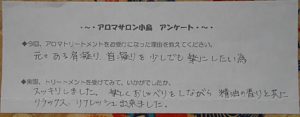 ・～・アロマサロン小島 アンケート・～・
◆今回、アロマトリートメントをお受けになった理由を教えてください。
元々ある肩凝り、首凝りを少しでも楽にしたい為
◆実際、トリートメントを受けてみて、いかがでしたか。
スッキリしました。楽しくおしゃべりをしながら精油の香りと共に
リラックス、リフレッシュ出来ました。